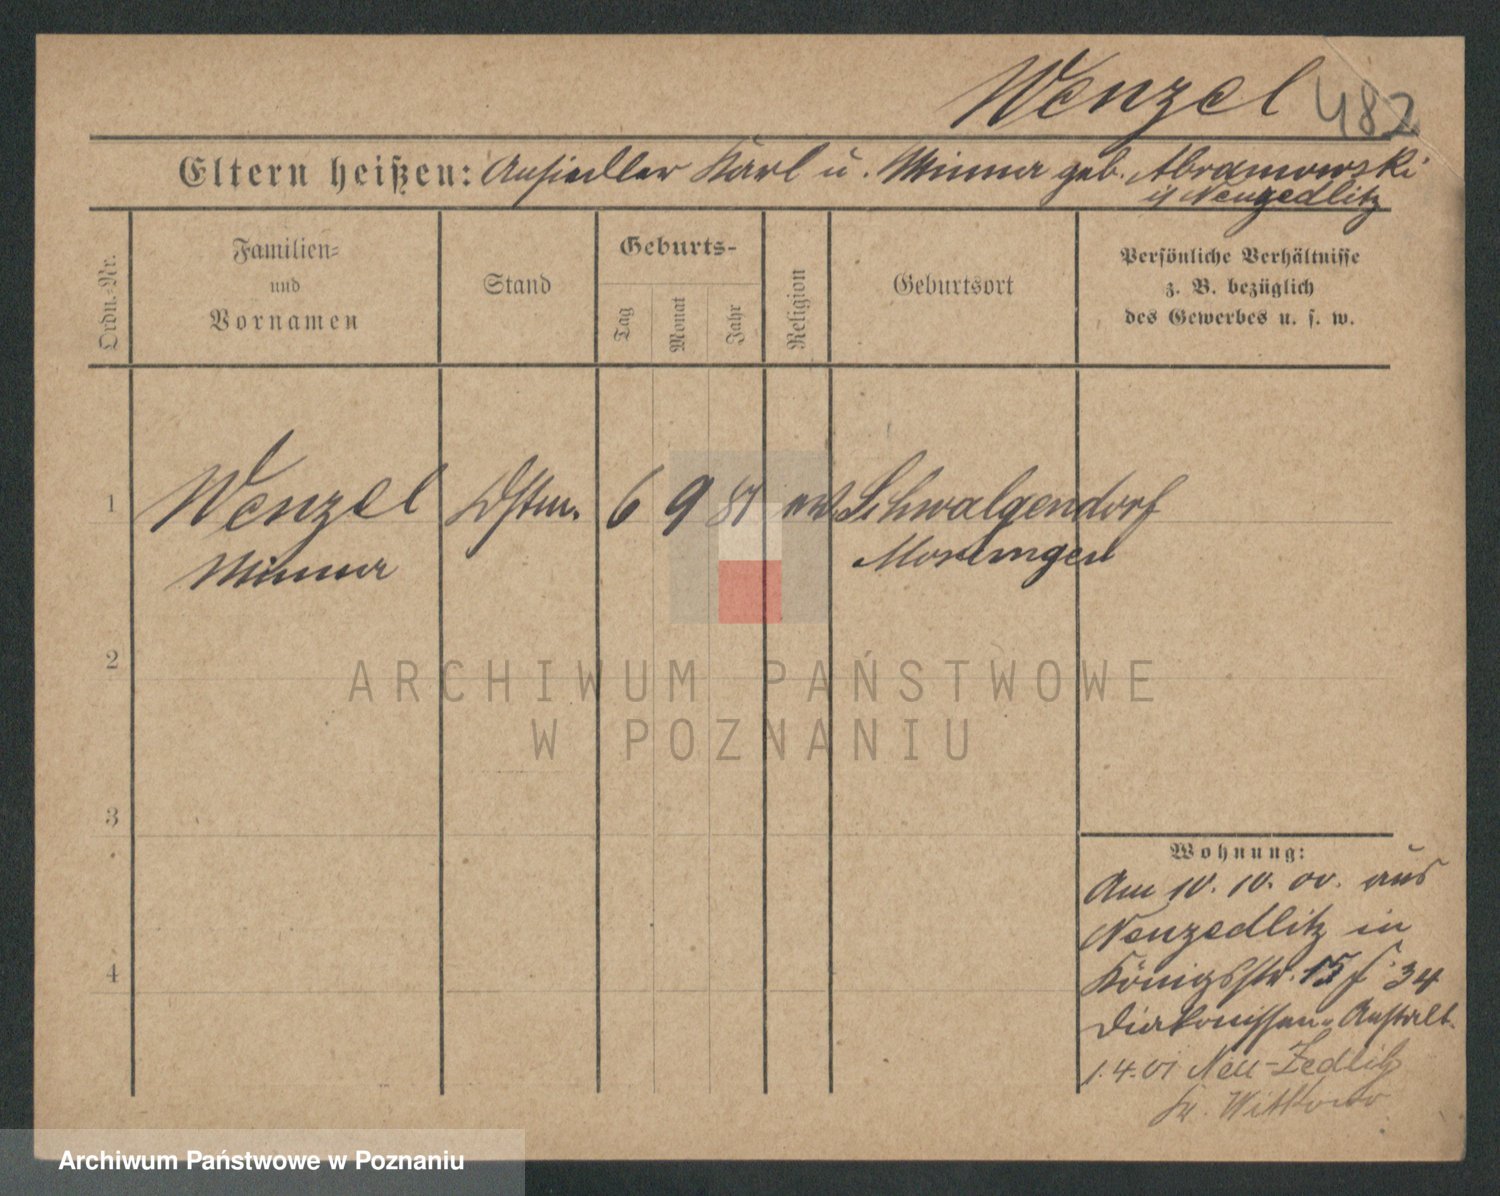 Wenzel 482
Eltern heißen: Ansiedler Karl u. Minna geb. Abramowski
i/ Neuzedlitz
Ordn.-Nr.
Familien-
und
Vornamen
Stand
Geburts-
Tag
Monat
Jahr
Religion
Geburtsort
Persönliche Verhältnisse
z. B. bezüglich
des Gewerbes u. s. w.
1 Wenzel 6 9 87 Schwalgendorf
Minna
2
3
4
Wohnung:
Am 10. 10. 00. aus
Neuzedlitz in
Königsstr. 15 34
Diakonissen-Anstalt.
1.4.01 Neu-Zedlitz
Kr. Witkowo
ARCHIWUM PAŃSTWOWE
W POZNANIU
Archiwum Państwowe w Poznaniu